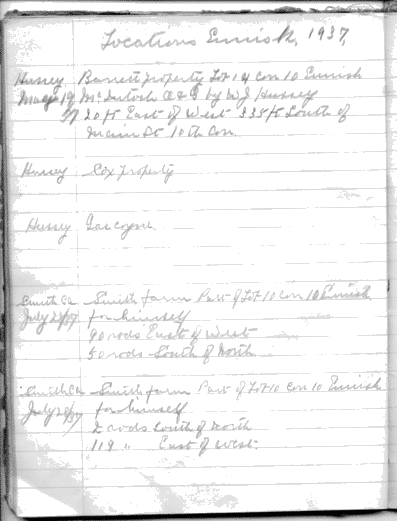 Locations Ennisk, 1937,
Hussey Barrett property Lot 14 Con 10 Ennish
May 19 McIntosh & by W J Hussey
37 20 ft East of West 335 ft South of
Main St 10th Con.
Hussey Cox property
Hussey Gascoyne
Smith Ca Smith farm Part of Lot 10 Con 10 Ennish
July 28/37 for himself
90 rods East of West
50 rods South of North
Smith Ca Smith farm Part of Lot 10 Con 10 Ennish
July 28/37 for himself
2 rods South of North
119 " East of West.